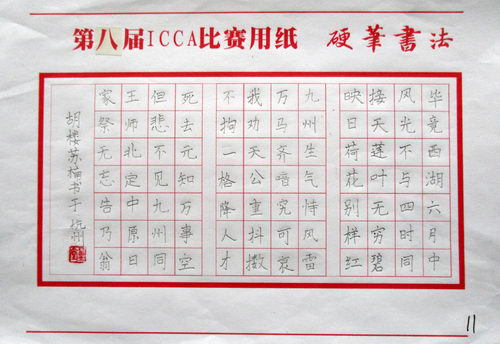 第八届ICCA比赛用纸 硬筆書法
毕竟西湖六月中
风光不与四时同
接天莲叶无穷碧
映日荷花别样红
九州生气恃风雷
万马齐喑究可哀
我劝天公重抖擞
不拘一格降人才
死去元知万事空
但悲不见九州同
王师北定中原日
家祭无忘告乃翁
胡楼苏楠书于杭州
11